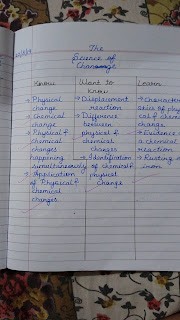 The
Science of
Change
Know
Want to
Know
Learn
→ Physical
change
→ Chemical
change
→ Physical &
chemical
changes
happening
simultaneously
→ Application
of Physical &
chemical
changes
→ Displacement
reaction
→ Difference
between
physical &
chemical
changes
→ Identification
of chemical &
physical
change
→ Characteri
stics of phy
cal & chem
change
→ Evidence
a chemical
reaction
→ Rusting
iron